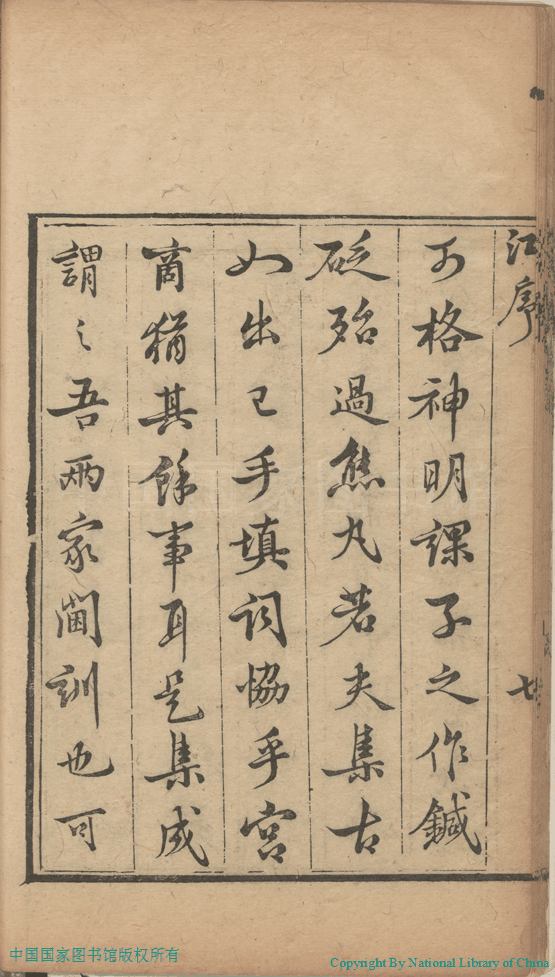 江序
七
可格神明課子之作鍼
砭殆過熊丸若夫集古
如出己手填詞協乎宮
商猶其餘事耳是集成
謂之吾兩家閫訓也可
中国国家图书馆版权所有
Copyright By National Library of China